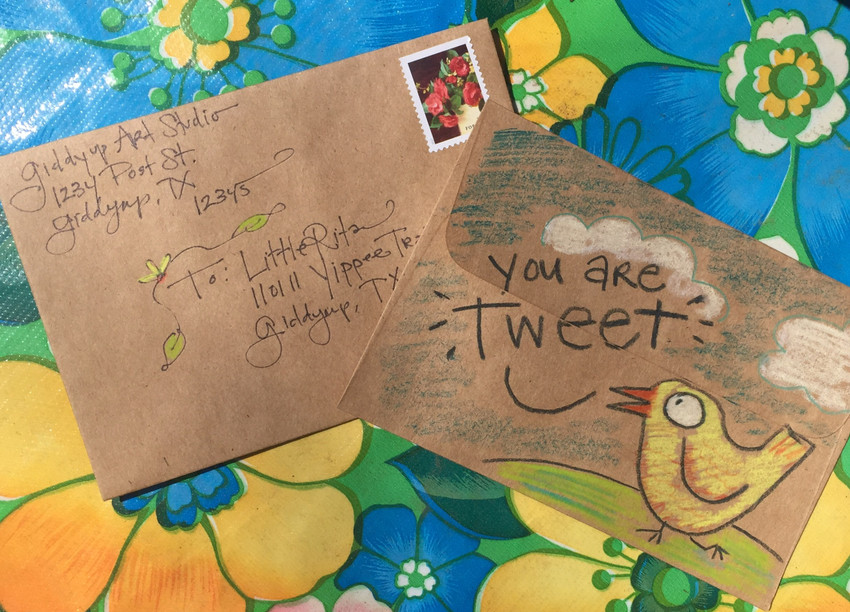 Giddyup Art Studio
1234 Post St.
Giddyup, TX
12345
To: LittleRita
11011 Yippee Tr-
Giddyup, TX
you are
Tweet